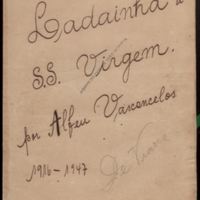 Ladainha a
S.S. Virgem.
por Alfeu Vasconcelos
1916-1947
De